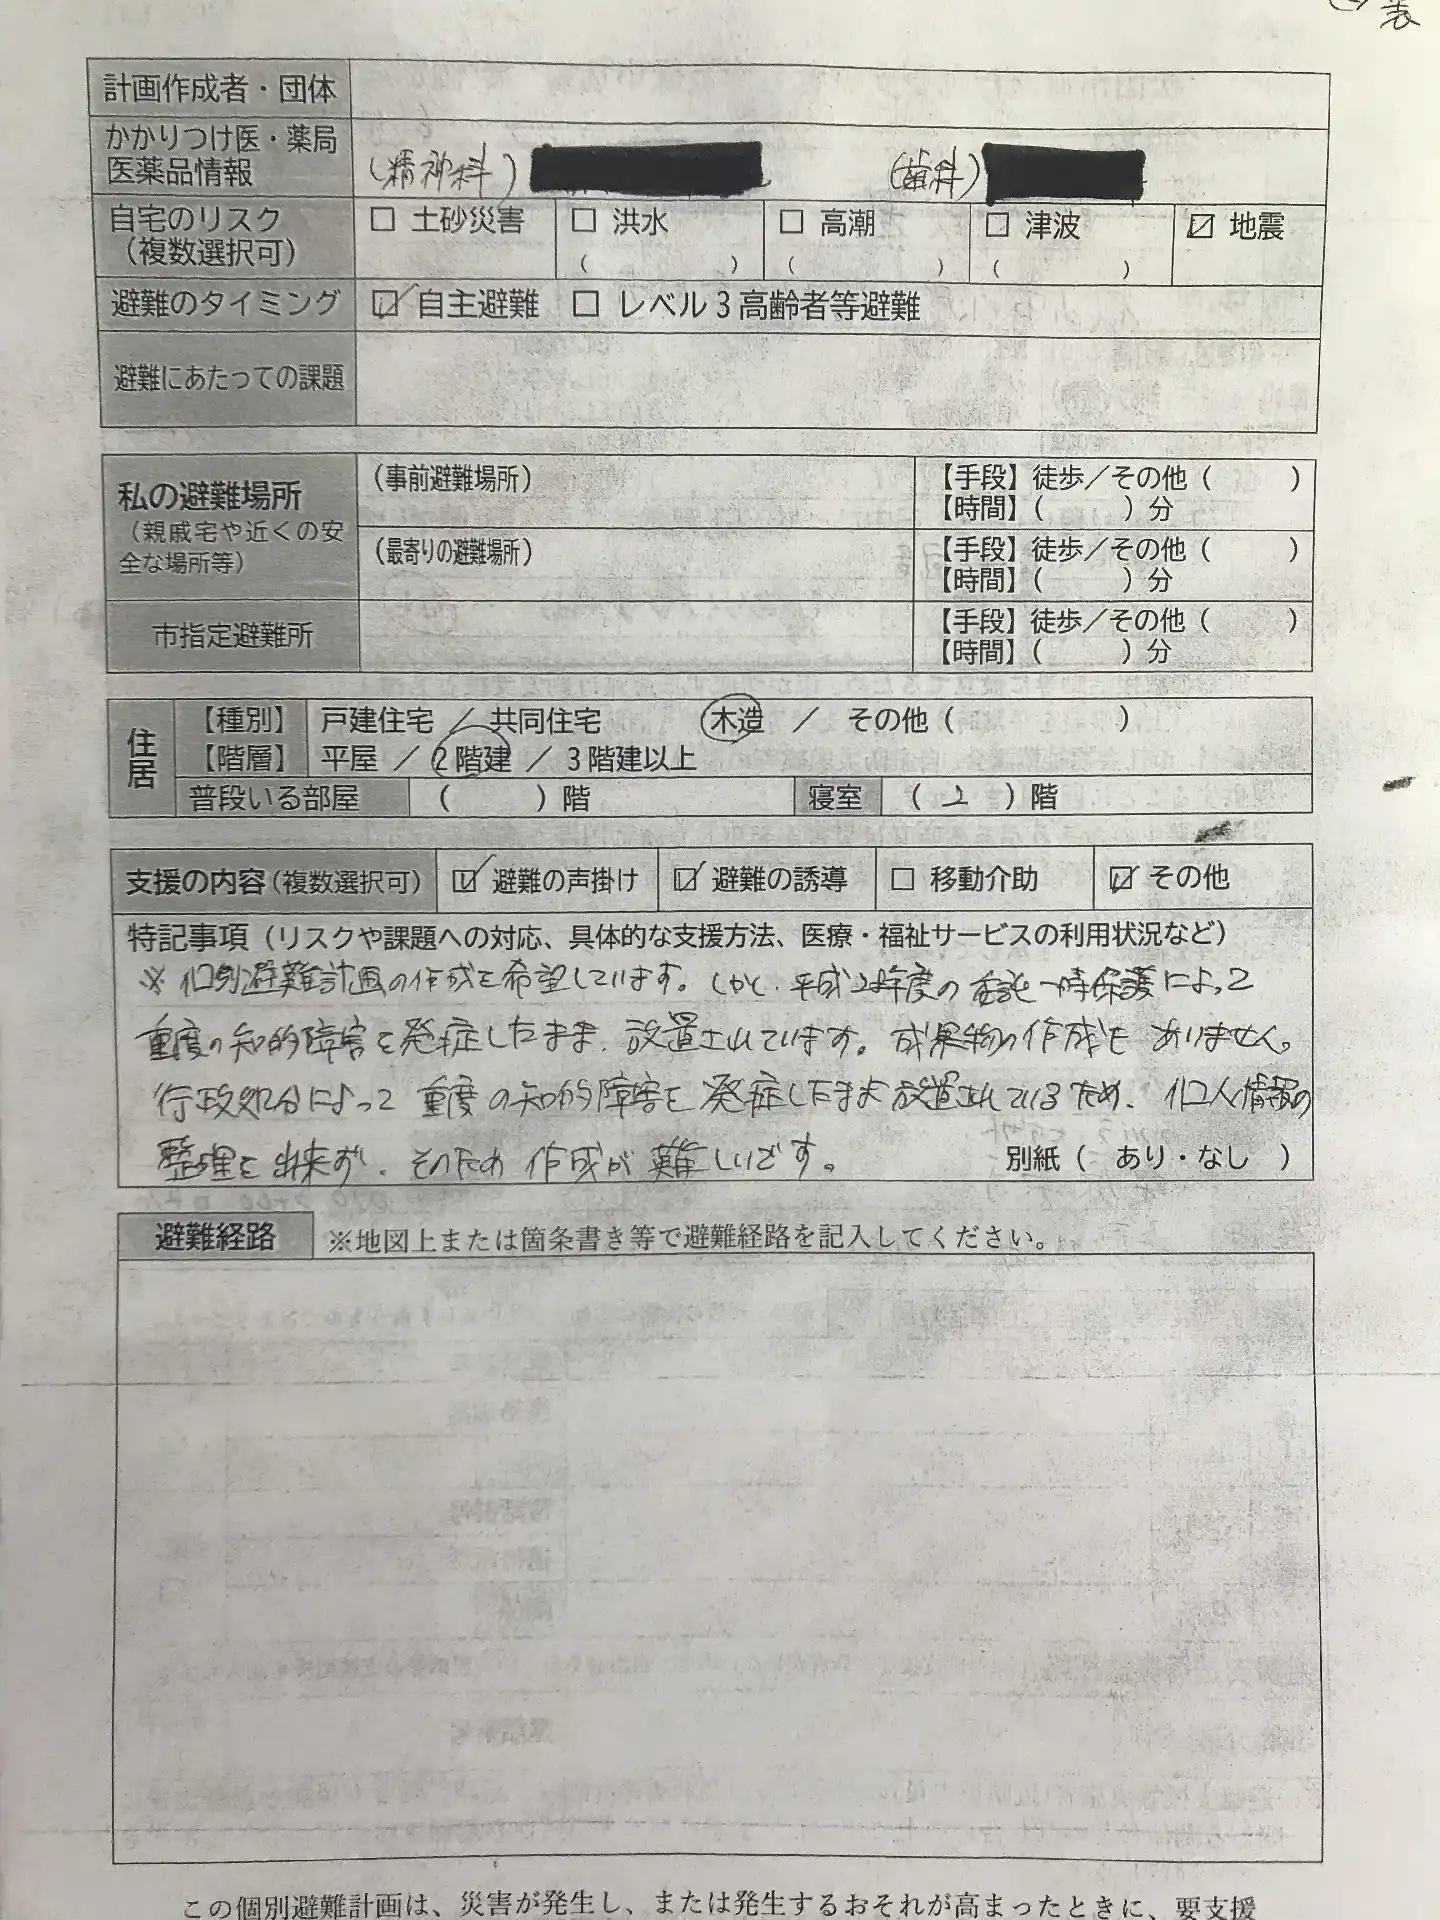 表
計画作成者・団体
かかりつけ医・薬局
医薬品情報
(精神科)
(歯科)
自宅のリスク
(複数選択可)
□ 土砂災害
□ 洪水
( )
□ 高潮
( )
□ 津波
( )
☑ 地震
避難のタイミング
☑ 自主避難 □ レベル3高齢者等避難
避難にあたっての課題
私の避難場所
(親戚宅や近くの安
全な場所等)
(事前避難場所)
【手段】徒歩/その他( )
【時間】( )分
(最寄りの避難場所)
【手段】徒歩/その他( )
【時間】( )分
市指定避難所
【手段】徒歩/その他( )
【時間】( )分
住居
【種別】 戸建住宅 / 共同住宅 木造 / その他( )
【階層】 平屋 / 2階建 / 3階建以上
普段いる部屋 ( )階 寝室 ( 2 )階
支援の内容(複数選択可) ☑ 避難の声掛け ☑ 避難の誘導 □ 移動介助 ☑ その他
特記事項(リスクや課題への対応、具体的な支援方法、医療・福祉サービスの利用状況など)
※ 個別避難計画の作成を希望しています。しかし、平成28年度の委託一時保護によって
重度の知的障害を発症したまま、放置されています。成果物の作成も ありません。
行政処分によって 重度の知的障害を発症したまま放置されているため、個人情報の
整理も出来ず、そのため 作成が難しいです。
別紙( あり・なし )
避難経路 ※地図上または箇条書き等で避難経路を記入してください。
この個別避難計画は、災害が発生し、または発生するおそれが高まったときに、要支援